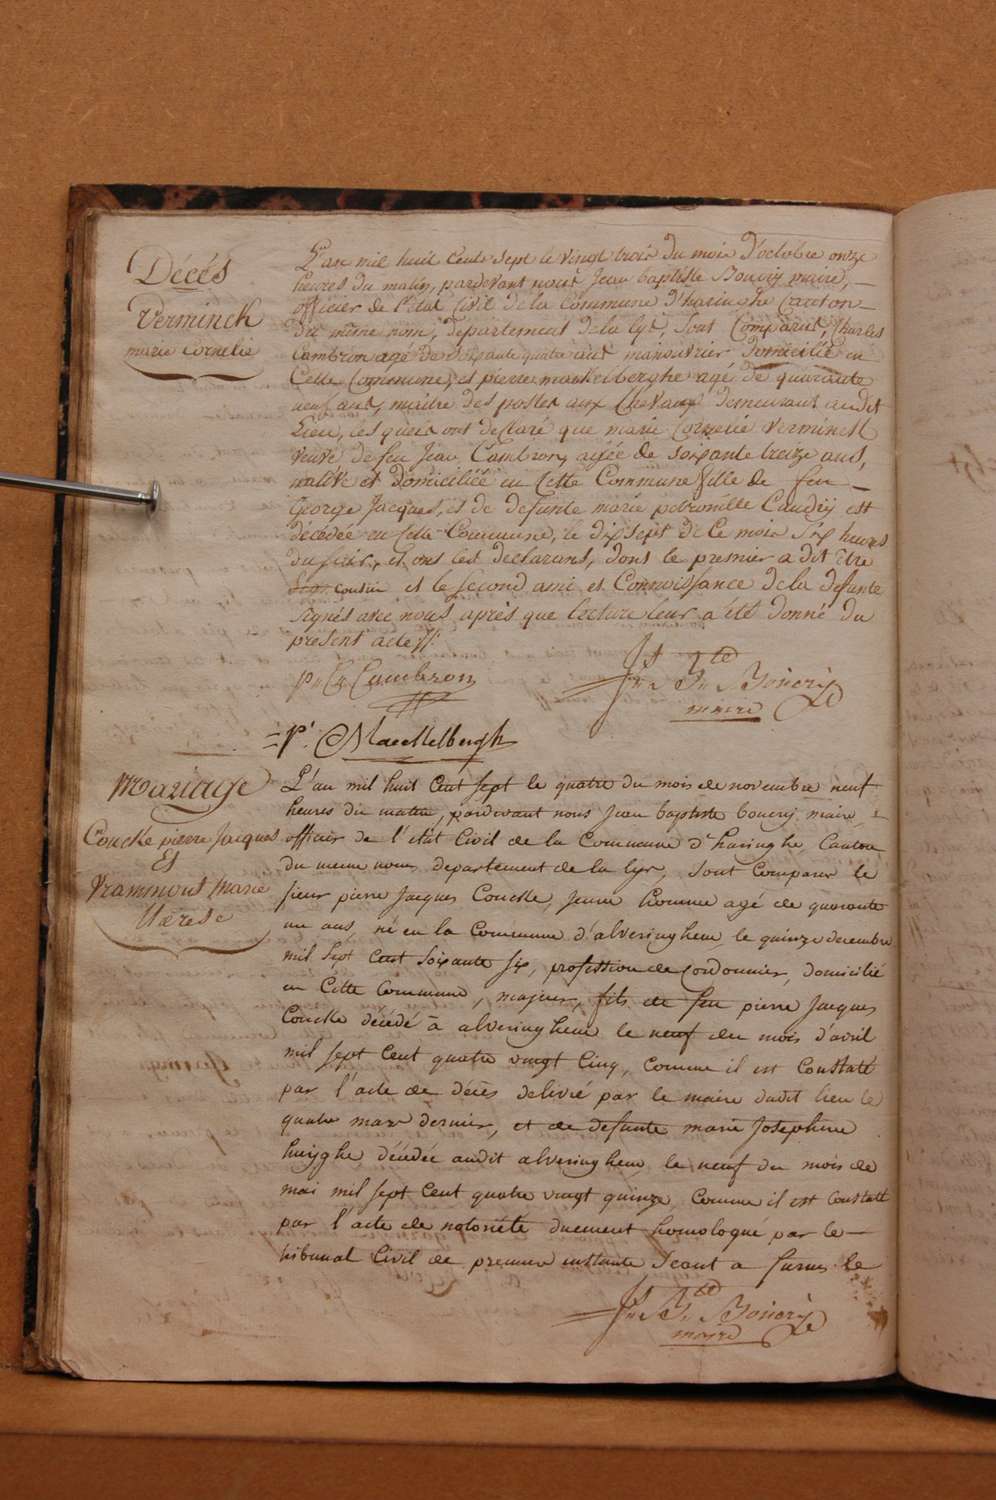 Décès
Verminck
marie Cornelie
L'an mil huit Cent Sept le vingt trois du mois d'octobre onze
heures du matin, pardevant nous Jean baptiste Boucry maire,
officier de l'état Civil de la Commune d'haringhe Canton
du même nom, departement de la lys, Sont Comparus, Charles
Cambron agé de soixante quatre ans manouvrier domicilié en
Cette Commune, et pierre maekelberghe agé de quarante
neuf ans, maitre des postes aux Chevaux demeurant audit
Lieu, les quels ont declaré que marie Cornelie Verminck
veuve de feu Jean Cambron, agée de soixante treize ans,
native et domiciliée en Cette Commune fille de feu
George Jacques, et de defunte marie petronille Caudry est
décédée en cette Commune, le dix sept de Ce mois six heures
du soir, et ont les declarans, dont le premier a dit être
cousin et le second ami et Connoissance de la defunte
signés avec nous après que lecture leur a été donné du
présent acte //.
Cambron
Jn Bte Boucry
maire
P. Maeckelbergh
Mariage
Coucke pierre Jacques
Et
Vrammout Marie
Thérese
L'an mil huit Cent sept le quatre du mois de novembre neuf
heures du matin, pardevant nous Jean baptiste boucry, maire
officier de l'état Civil de la Commune d'haringhe, Canton
du meme nom, departement de la lys, Sont Comparus le
sieur pierre Jacques Coucke, Jeune homme agé de quarante
un ans, né en la Commune d'alveringhem, le quinze decembre
mil Sept Cent Soixante six, profession de Cordonnier, domicilié
en Cette Commune, majeur, fils de feu pierre Jacques
Coucke décédé à alveringhem le neuf du mois d'avril
mil sept Cent quatre vingt Cinq, Comme il est Constaté
par l'acte de décès delivré par le maire dudit lieu le
quatre mars dernier, et de defunte marie Josephine
huyghe décédée audit alveringhem le neuf du mois de
mai mil sept Cent quatre vingt quinze Comme il est Constaté
par l'acte de notoriété duement homologué par le
tribunal Civil de premiere instance Seant a furnes le
Jn Bte Boucry
maire